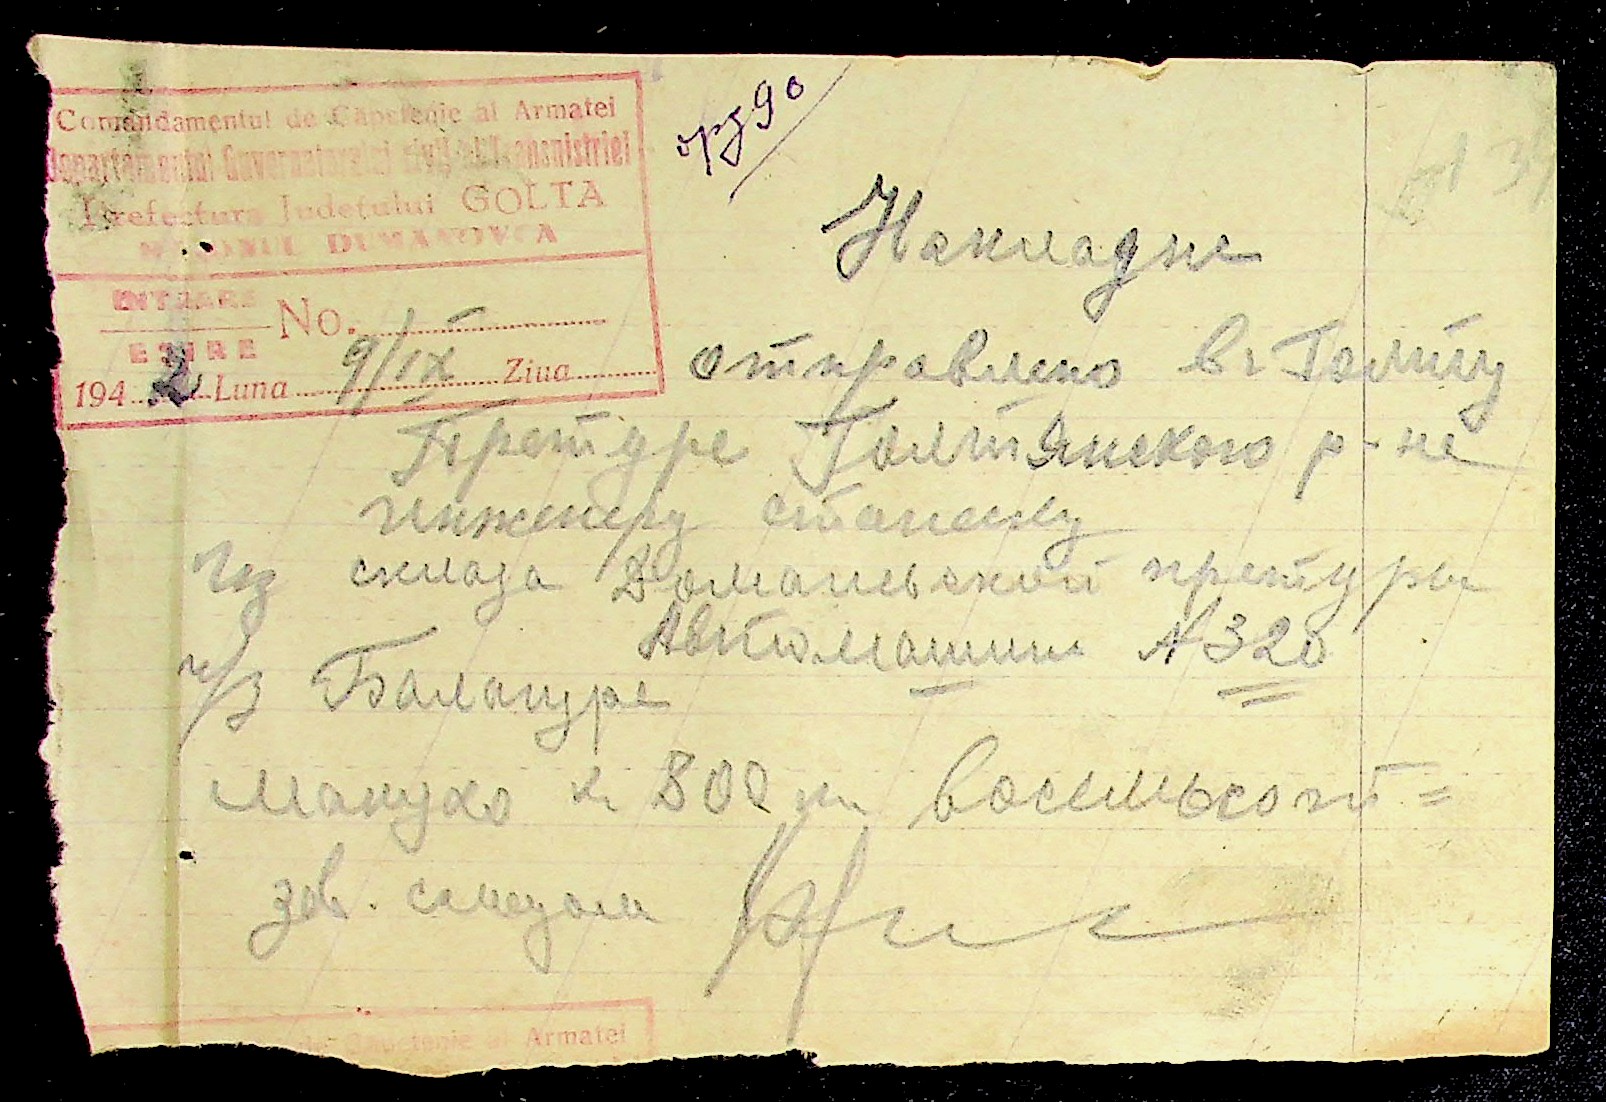 Comandamentul de Capetenie al Armatei
Departamentul Guvernatorului civil al Transnistriei
Prefectura Județului GOLTA
RAIONUL DUMANOVCA
INTRARE
No.
EȘIRE
194 2 Luna 9/IX Ziua
Накладна
отправлено в г Голту
Претуре Голтянского р-на
инженеру
Из склада Доманевской претуры
Автомашина № 320
ч/з
макухо к 800 кг восемьсот =
зав. складом
de Capetenie al Armatei